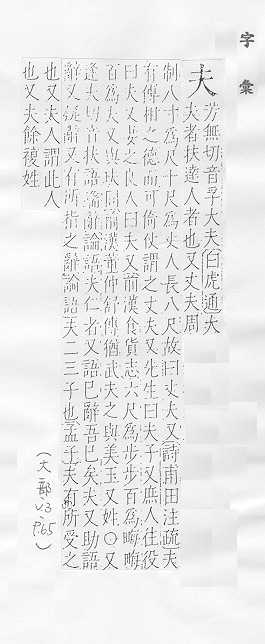 字彙
夫 芳無切音孚大夫白虎通大
夫者扶達人者也又丈夫周
制八寸為尺十尺為丈人長八尺故曰丈夫又詩甫田注疏夫
有傅相之德而可倚仗謂之丈夫又先生曰夫子又庶人在役
曰夫又女之良人曰夫又前漢食貨志六尺為步步百為畮畮
百為夫又與玞同前漢董仲舒傳猶武夫之與美玉又姓〇又
逢夫切音扶語端辭論語夫仁者又語已辭吾已矣夫又助語
辭又疑辭又有所指之辭論語夫二三子也孟子夫有所受之
也又夫人謂此人
也又夫餘複姓
(大部v3、P.65)